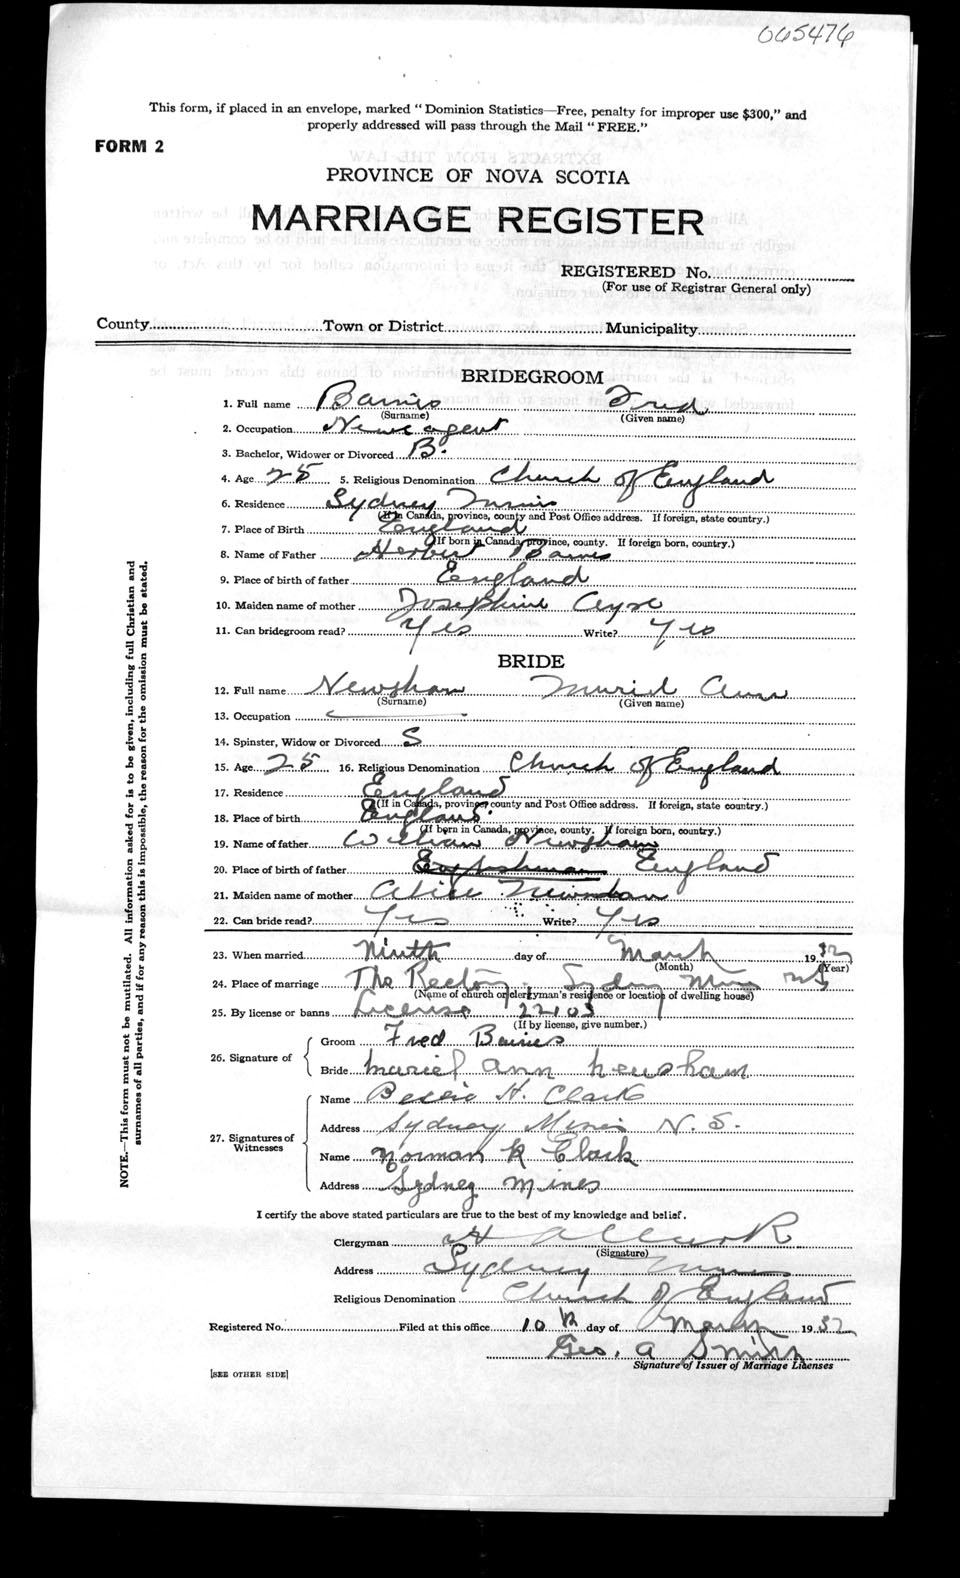 065476
This form, if placed in an envelope, marked "Dominion Statistics—Free, penalty for improper use $300," and
properly addressed will pass through the Mail "FREE."
FORM 2
PROVINCE OF NOVA SCOTIA
MARRIAGE REGISTER
REGISTERED No.
(For use of Registrar General only)
County Town or District Municipality
BRIDEGROOM
1. Full name Baines Fred
(Surname) (Given name)
2. Occupation News agent
3. Bachelor, Widower or Divorced B.
4. Age 25 5. Religious Denomination Church of England
6. Residence Sydney Mines
(If in Canada, province, county and Post Office address. If foreign, state country.)
7. Place of Birth England
(If born in Canada, province, county. If foreign born, country.)
8. Name of Father Herbert Baines
9. Place of birth of father England
10. Maiden name of mother Josephine
11. Can bridegroom read? Yes Write? Yes
BRIDE
12. Full name Newsham Muriel Ann
(Surname) (Given name)
13. Occupation
14. Spinster, Widow or Divorced S
15. Age 25 16. Religious Denomination Church of England
17. Residence England
(If in Canada, province, county and Post Office address. If foreign, state country.)
18. Place of birth England
(If born in Canada, province, county. If foreign born, country.)
19. Name of father William Newsham
20. Place of birth of father England
21. Maiden name of mother Alice
22. Can bride read? Yes Write? Yes
23. When married Ninth day of March 1932
(Month) (Year)
24. Place of marriage The Rectory, Sydney Mines NS
(Name of church or clergyman's residence or location of dwelling house)
25. By license or banns License 22103
(If by license, give number.)
26. Signature of Groom Fred Baines
Bride Muriel Ann Newsham
27. Signatures of Witnesses
Name Bessie H. Clark
Address Sydney Mines N.S.
Name Norman R Clark
Address Sydney Mines
I certify the above stated particulars are true to the best of my knowledge and belief.
Clergyman A Clark
(Signature)
Address Sydney Mines
Religious Denomination Church of England
Registered No. Filed at this office 10th day of March 1932
Geo. A Smith
Signature of Issuer of Marriage Licenses
[SEE OTHER SIDE]
NOTE.—This form must not be mutilated. All information asked for is to be given, including full Christian and
surnames of all parties, and if for any reason this is impossible, the reason for the omission must be stated.